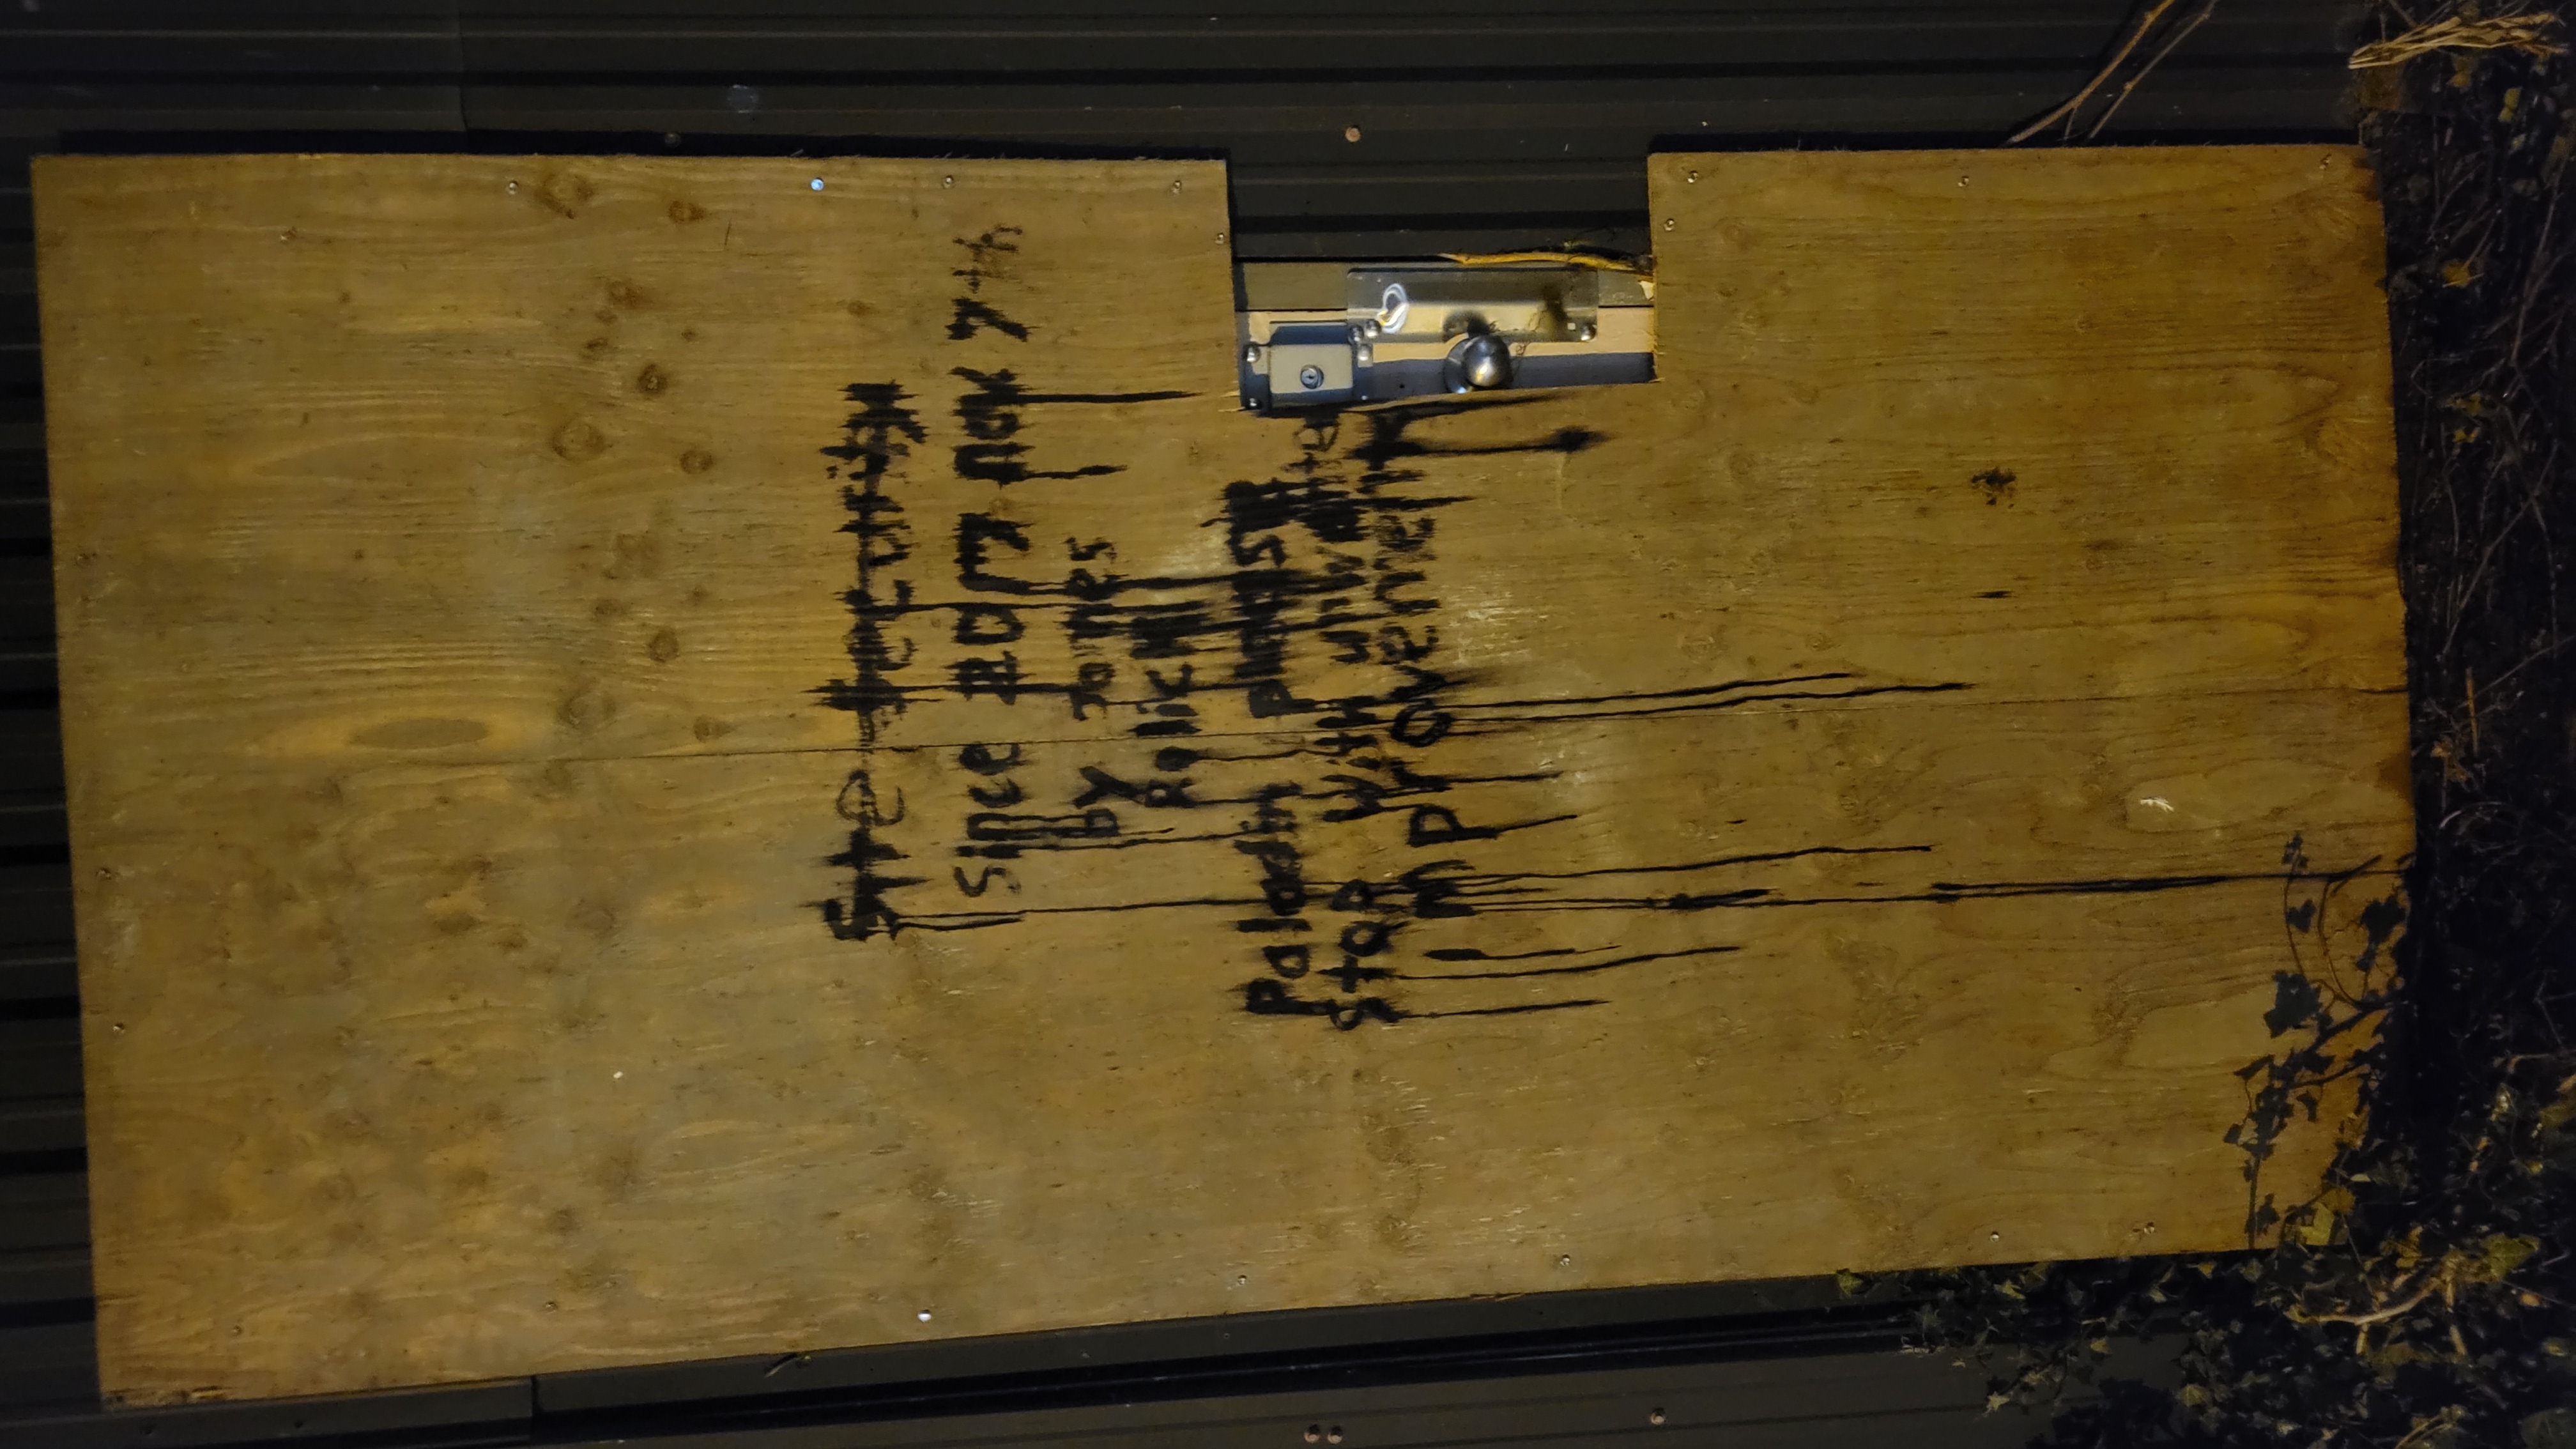 Site Security
Since 2017 nov 7th
by James
Rolich
Paladin please
stop with unwanted
improvements